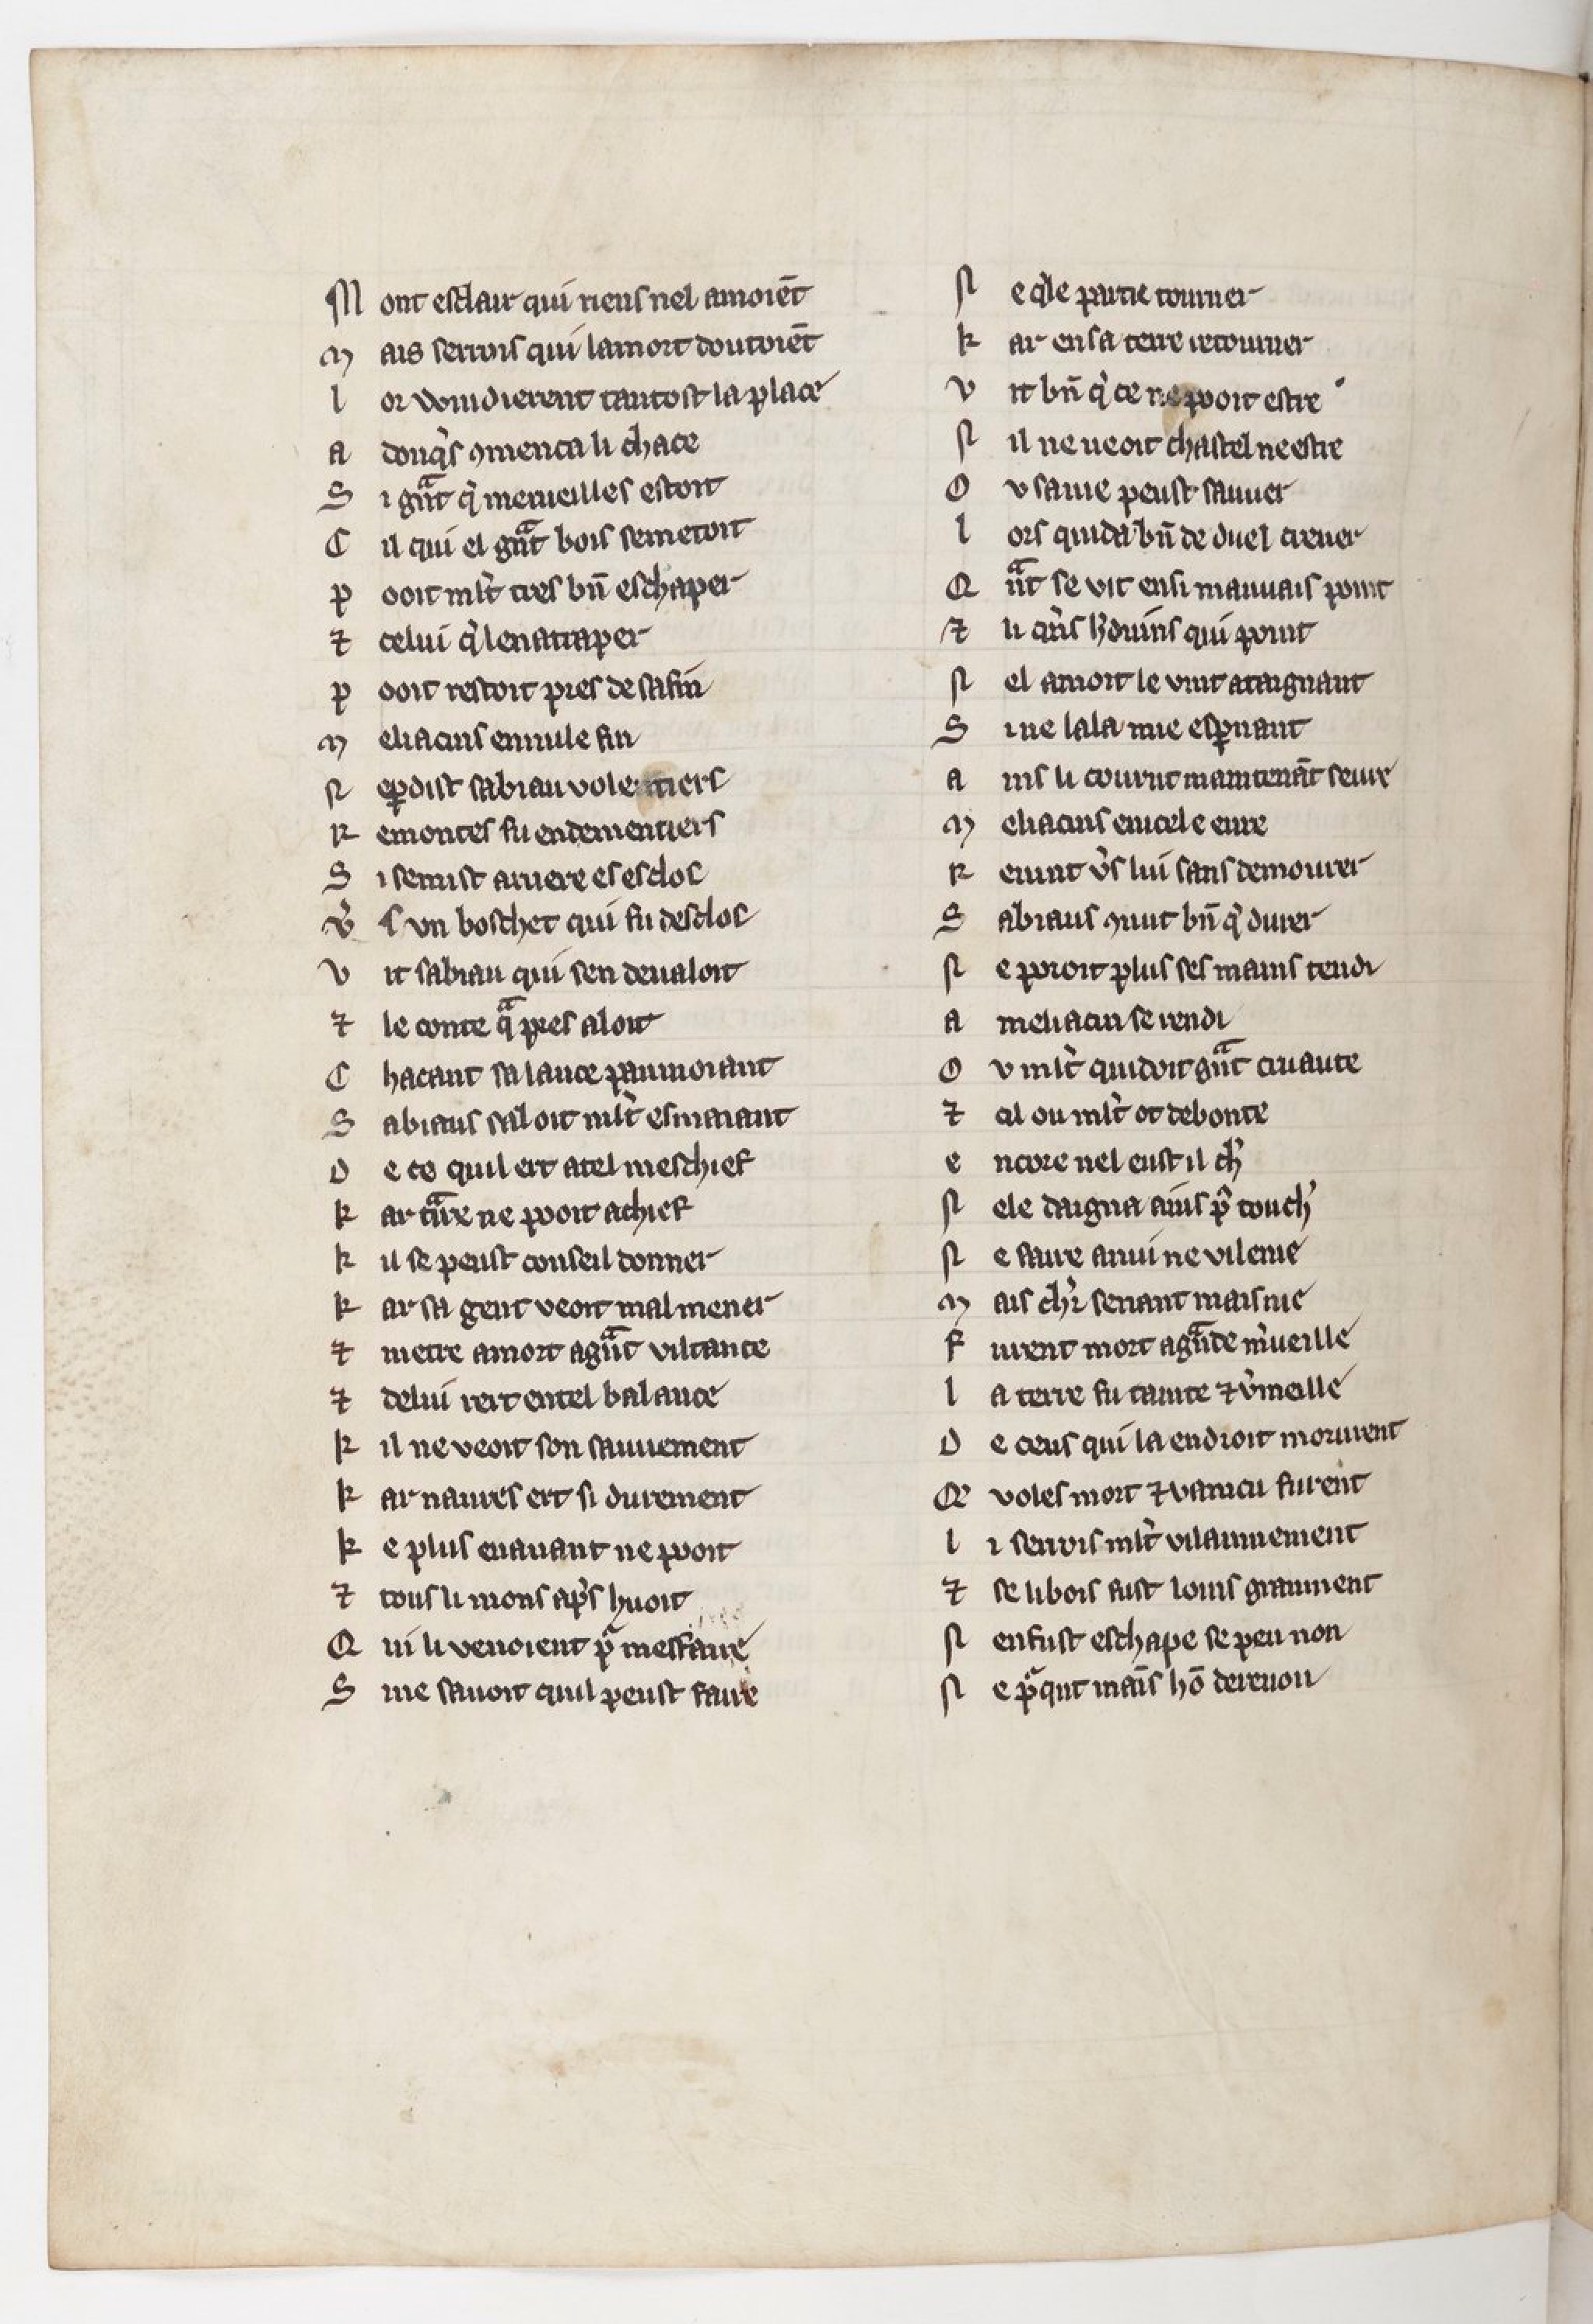 M ont esclair qui riens nel amoiēt
M ais serrois qui lamort doutoiēt
l or vouidierent tantost la place
a donq̃s ꝯmenca li chace
S i gᵃnt q̃ merueilles estoit
C il qui el gᵃnt bois semetoit
p ooit ml̃t tres bn̄ eschaper
⁊ celui q̃ lenatraper
p ooit restoit pres de safin
M eliacins ennule fin
N eꝑdist sabiau volentiers
R emontes fu endementiers
S i semist arriere es esclos
v̾ s vn boschet qui fu desclos
V it sabian qui sen deualoit
⁊ le conte qᵃ pres aloit
C hacant sa lance paumoiant
S abiaus saloit ml̃t esmaiant
D e ce quil ert atel meschief
k ar tᵃire ne pooit achief
k il se peust conseil donner
k ar sa gent veoit mal mener
⁊ metre amort agᵃnt viltance
⁊ delui rert entel balance
k il ne veoit son sauuement
k ar naures ert si durement
k e plus enauant ne pooit
⁊ tous li mons ap̃s huoit
Q ui li venoient p̃ mesfaire
S ine sauoit quil peust faire
N e q̃le partie tourner
k ar en sa terre retourner
V it bn̄ q̃ ce ne pooit estre
N il ne ueoit chastel ne estre
O v sa uie peust sauuer
l ors quida bn̄ de duel creuer
Q ᵃnt se vit ensi mauuais point
⁊ li q̃ns h̾duins qui point
N el amoit le vint ataignant
S i ne lala mie espꝑnant
a ins li courut maintenāt seure
M eliacins enicel eure
R euint v̾s lui sans demourer
S abiaus ꝯnut bn̄ q̃ durer
N e pooit plus ses mains tendi
a meliacin se rendi
O v ml̃t quidoit gᵃnt cruaute
⁊ cil ou ml̃t ot debonte
e ncore nel eust il ch̾
N ele daigna ains p̃ touch̾
N e faire anui ne vilenie
M ais ch̾r seriant maisnie
F urent mort agᵃnde m̾ueille
l a terre fu tainte ⁊ v̾meille
D e ceus qui la endroit morurent
Q voles mort ⁊ vaincu furent
l i serrois ml̃t vilainnement
⁊ se li bois fust louis graument
N enfust eschape se peu non
N e p̃qnt mains hō derenon